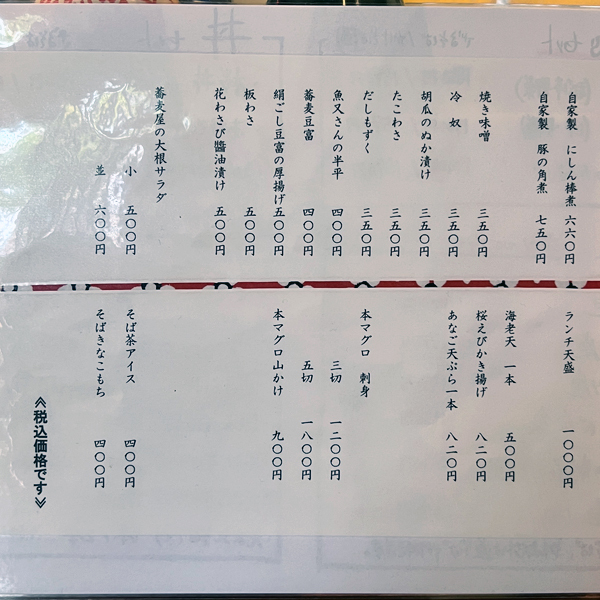 自家製 にしん棒煮 六六〇円
自家製 豚の角煮 七五〇円
焼き味噌 三五〇円
冷奴 三五〇円
胡瓜のぬか漬け 三五〇円
たこわさ 三五〇円
だしもずく 三五〇円
魚又さんの半平 四〇〇円
蕎麦豆富 四〇〇円
絹ごし豆富の厚揚げ 五〇〇円
板わさ 五〇〇円
花わさび醬油漬け 五〇〇円
蕎麦屋の大根サラダ
小 五〇〇円
並 六〇〇円
ランチ天盛 一〇〇〇円
海老天 一本 五〇〇円
桜えびかき揚げ 八二〇円
あなご天ぷら一本 八二〇円
本マグロ 刺身
三切 一二〇〇円
五切 一八〇〇円
本マグロ山かけ 九〇〇円
そば茶アイス 四〇〇円
そばきなこもち 四〇〇円
《税込価格です》